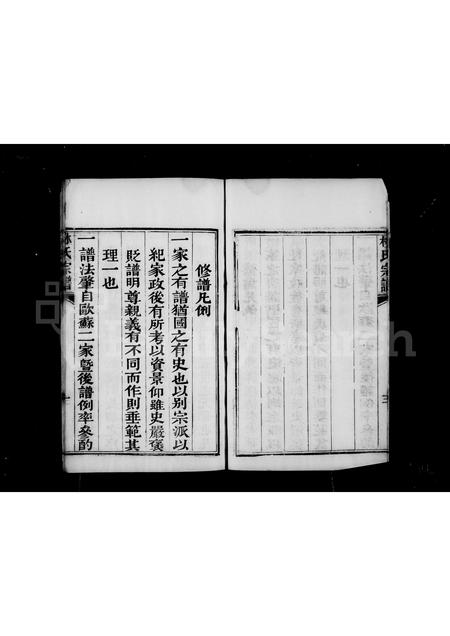 修譜凡例
一家之有譜猶國之有史也以別宗派以
紀家政後有所考以資景仰雖史嚴褒
貶譜明尊親義有不同而作則垂範其
理一也
一譜法肇自歐蘇二家暨後譜例率叅酌
林氏宗譜
林氏宗譜